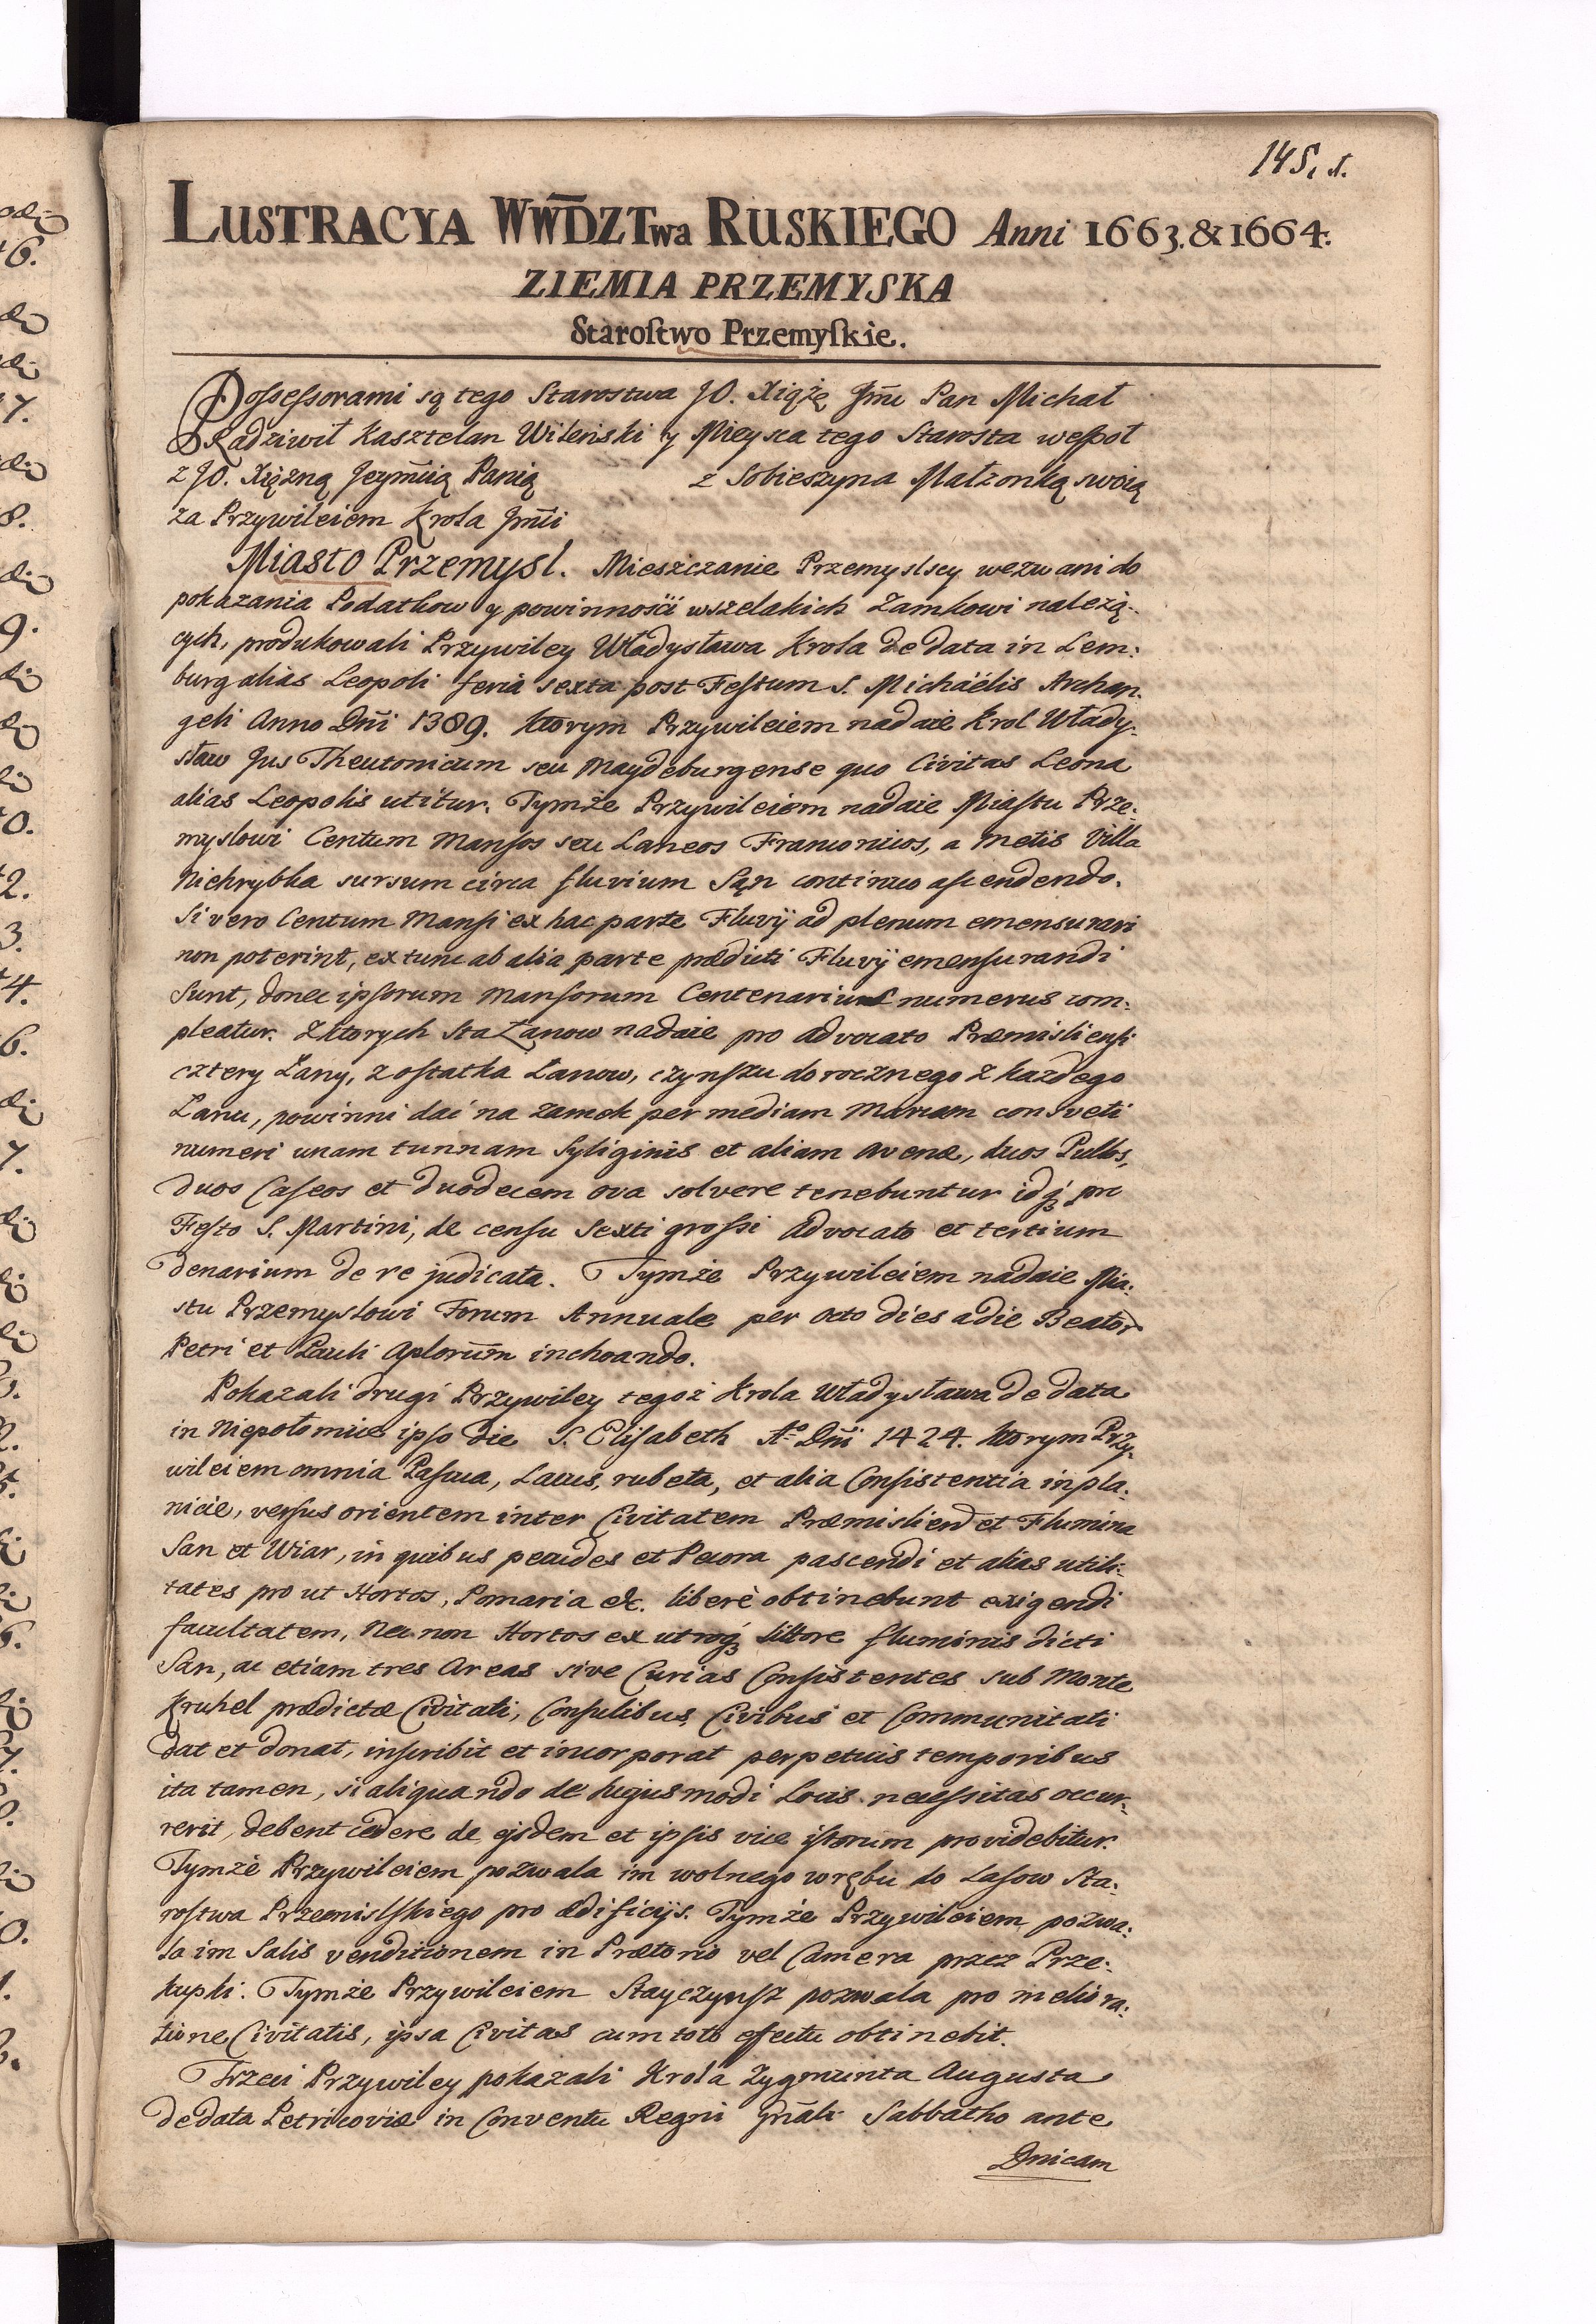 145. 1.
LUSTRACYA WWDZTwa RUSKIEGO Anni 1663. & 1664.
ZIEMIA PRZEMYSKA
Staroſtwo Przemyſkie.
Poſseſsorami są tego Starostwa JO. Xiążę Jm̃ Pan Michał
Radziwił Kasztelan Wileński y Mieysca tego Starosta weſpoł
z JO. Xiężną Jeym̃cią Panią z Sobieszyna Małzonką swoią
za Przywileiem Krola Jm̃ci
Miasto Przemysl. Mieszczanie Przemyslscy wezwani do
pokazania Podatkow y powinnosci wszelakich Zamkowi należą-
cych, produkowali Przywiley Władysława Krola de data in Lem:
burg alias Leopoli feria sexta post Feſtum S. Michäélis Archan
geli Anno Dñi 1389. ktorym Przywileiem nadaie Krol Włady-
sław Jus Theutonicum seu Maydeburgense quo Civitas Leona
alias Leopolis utitur. Tymże Przywileiem nadaie Miaſtu Prze:
myslowi Centum Manſos seu Laneos Franconicos, a metis Villa
Niehrybka sursum circa fluvium Sąn continuo aſcendendo.
Si vero Centum Manſi ex hac parte Fluvÿ ad plenum emensurari
non poterint, ex tunc ab alia parte prædicti Fluvÿ emenſurandi
sunt, donec ipſorum Manſorum Centenarius numerus com:
pleatur. Z ktorych sta Łanow nadaie pro advocato Præmislienſi
cztery Łany, z oſtatka Łanow, czynſzu dorocznego z każdego
Łanu, powinni dać na zamek per mediam Marcam consveti
numeri unam tunnam Syliginis et aliam avenæ, duos Pullos,
duos Caſeos et duodecem ova solvere tenebuntur idq́ꝫ pro
Feſto S. Martini, de cenſu sexti groſsi advocato et tertium
denarium de re judicata. Tymże Przywileiem nadaie Mia:
stu Przemyslowi Forum Annuale per octo dies a die Beator
Petri et Pauli Aplorum̃ inchoando.
Pokazali drugi Przywiley tegoż Krola Władysława de data
in Niepołomice ipſo die S. Eliſabeth Aº Dñi 1424. ktorym Przy-
wileiem omnia Paſcua, Lacus, rubeta, et alia Conſistentia in pla:
nicie, verſus orientem inter Civitatem Præmisliens et Flumina
San et Wiar, in quibus pecudes et Pecora pascendi et alias utili:
tates pro ut Hortos, Pomaria &c. liberè obtinebunt exigendi
facultatem, Nec non Hortos ex utroq́ꝫ littore fluminis dicti
San, ac etiam tres Areas sive Curias Conſistentes sub Monte
Kruhel prædictæ Civitati, Conſulibus, Civibus et Communitati
dat et donat, inſcribit et incorporat perpetuis temporibus
ita tamen, si aliquando de hujusmodi Locis neceſsitas occur:
rerit, debent cedere de ejsdem et ipſis vice iſtorum providebitur.
Tymże Przywileiem pozwala im wolnego wrębu do Laſow Sta:
roſtwa Przemislſkiego pro ædificijs. Tymże Przywileiem pozwa:
la im Salis venditionem in Prætorio vel Camera przez Prze:
kupki. Tymże Przywileiem Stayczynſz pozwala pro meliora:
tione Civitatis, ipsa Civitas cum toto effectu obtinebit.
Trzeci Przywiley pokazali Krola Zygmunta Augusta
de data Petricoviæ in Conventu Regni gñali Sabbatho ante
Dnicam